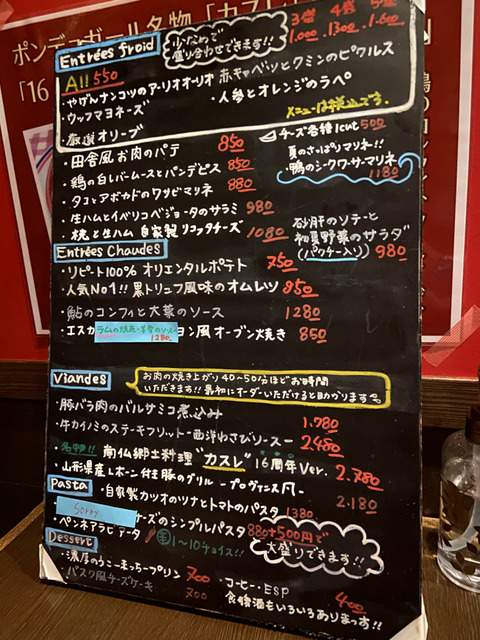 ポンデュガール名物「カスレ」
「16
Entrées froid
少なめで
盛り合わせできます!!
3種 4種 5種
1.000 1.300 1.600
All 550
・やげんナンコツのアーリオオーリオ
・赤キャベツとクミンのピクルス
・ウッフマヨネーズ
・人参とオレンジのラペ
・厳選オリーブ
メニューは税込です。
・田舎風お肉のパテ 850
チーズ各種1cut 500
・鶏の白レバームースとパンデピス 850
夏のさっぱりマリネ!!
・鴨のシークワーサーマリネ 1180
・タコとアボカドのワサビマリネ 880
・生ハムとイベリコベジョータのサラミ 980
・桃と生ハム 自家製リコッタチーズ 1080
砂肝のソテーと
初夏野菜のサラダ
(パクチー入り) 980
Entrées Chaudes
・リピート100% オリエンタルポテト 750
・人気No1!! 黒トリュフ風味のオムレツ 850
・鮎のコンフィと大葉のソース 1280
・エスカ
ラムの焼売-羊管のソース
1280.
ヨン風オーブン焼き 850
Viandes
お肉の焼き上がり40〜50分ほどお時間
いただきます!! 最初にオーダーいただけると助かります。
・豚バラ肉のバルサミコ煮込み 1.780
・牛カイノミのステークフリット-西洋わさびソース- 2.480
・名物!! 南仏郷土料理 "カスレ" 16周年Ver. 2.780
・山形県産Lボーン付き豚のグリル -プロヴァンス風- 2.180
Pasta
・自家製カツオのツナとトマトのパスタ 1380
Sorry
ーズのシンプルパスタ 880
+500円で
大盛りできます!!
・ペンネアラビアータ 辛1〜10チョイス!!
Dessert
・濃厚うこーまっちープリン 700
・バスク風チーズケーキ 700
・コーヒー・ESP 400
食後酒もいろいろあります!!